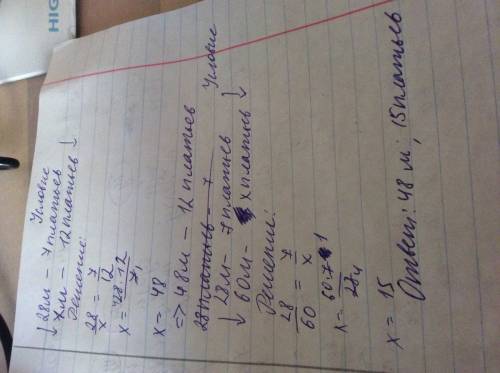 HIG
Условие
↓ 28м – 7 платьев
xм – 12 платьев ↓
Решение:
28/x = 7/12
x = 28·12/7
x = 48
=> 48м – 12 платьев
Условие
↓ 28м – 7 платьев
60м – x платьев ↓
Решение:
28/60 = 7/x
x = 60·7/28
x = 15
Ответ: 48 м; 15 платьев